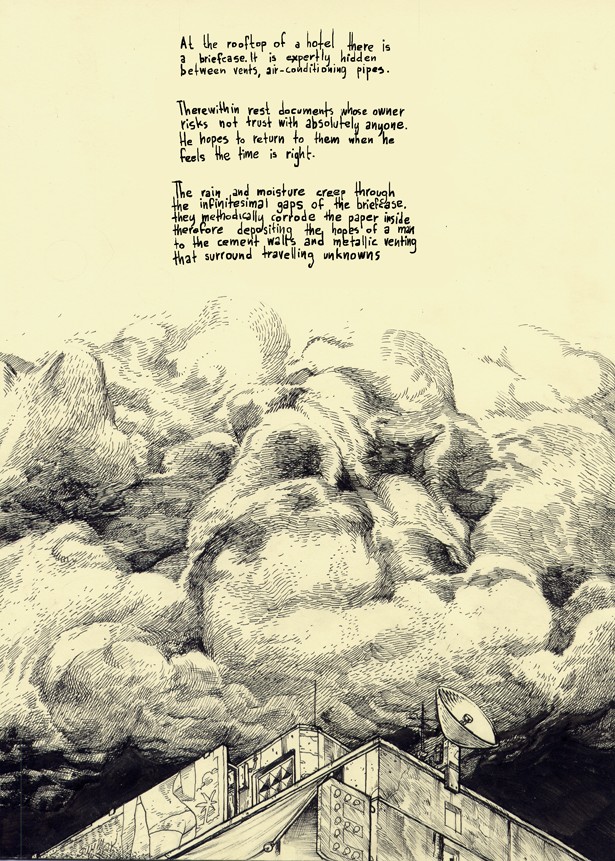 At the rooftop of a hotel there is
a briefcase. It is expertly hidden
between vents, air-conditioning pipes.
Therewithin rest documents whose owner
risks not trust with absolutely anyone.
He hopes to return to them when he
feels the time is right.
The rain and moisture creep through
the infinitesimal gaps of the briefcase.
they methodically corrode the paper inside
therefore depositing the hopes of a man
to the cement walls and metallic venting
that surround travelling unknowns